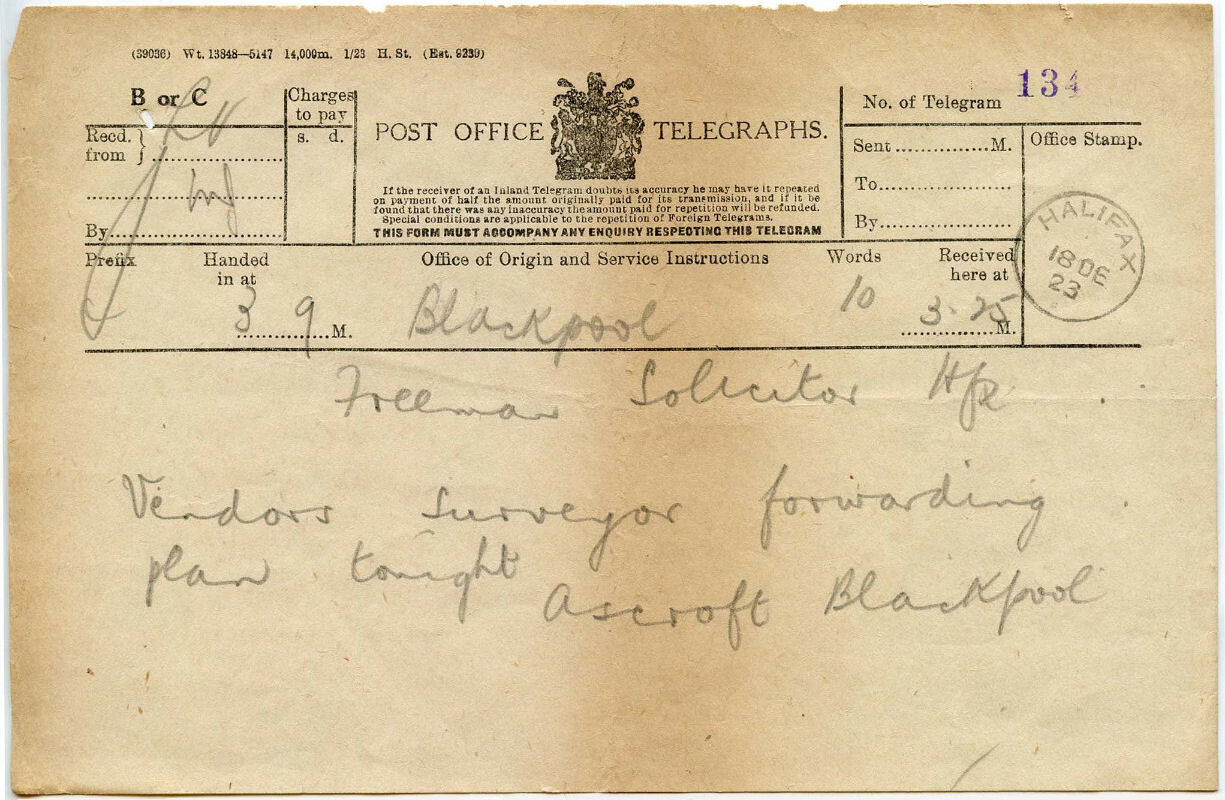 (39036) Wt. 13848—5147 14,000m. 1/23 H. St. (Est. 9239)
B or C
Charges to pay
s. d.
Recd. from
By
POST OFFICE TELEGRAPHS.
If the receiver of an Inland Telegram doubts its accuracy he may have it repeated
on payment of half the amount originally paid for its transmission, and if it be
found that there was any inaccuracy the amount paid for repetition will be refunded.
Special conditions are applicable to the repetition of Foreign Telegrams.
THIS FORM MUST ACCOMPANY ANY ENQUIRY RESPECTING THIS TELEGRAM
No. of Telegram 134
Sent M.
To
By
Office Stamp.
HALIFAX
18 DE
23
Prefix Handed in at Office of Origin and Service Instructions Words Received here at
3 9 M. Blackpool 10 3.25 M.
Freeman Solicitor Hfx
Vendors Surveyor forwarding
plan tonight
Ascroft Blackpool